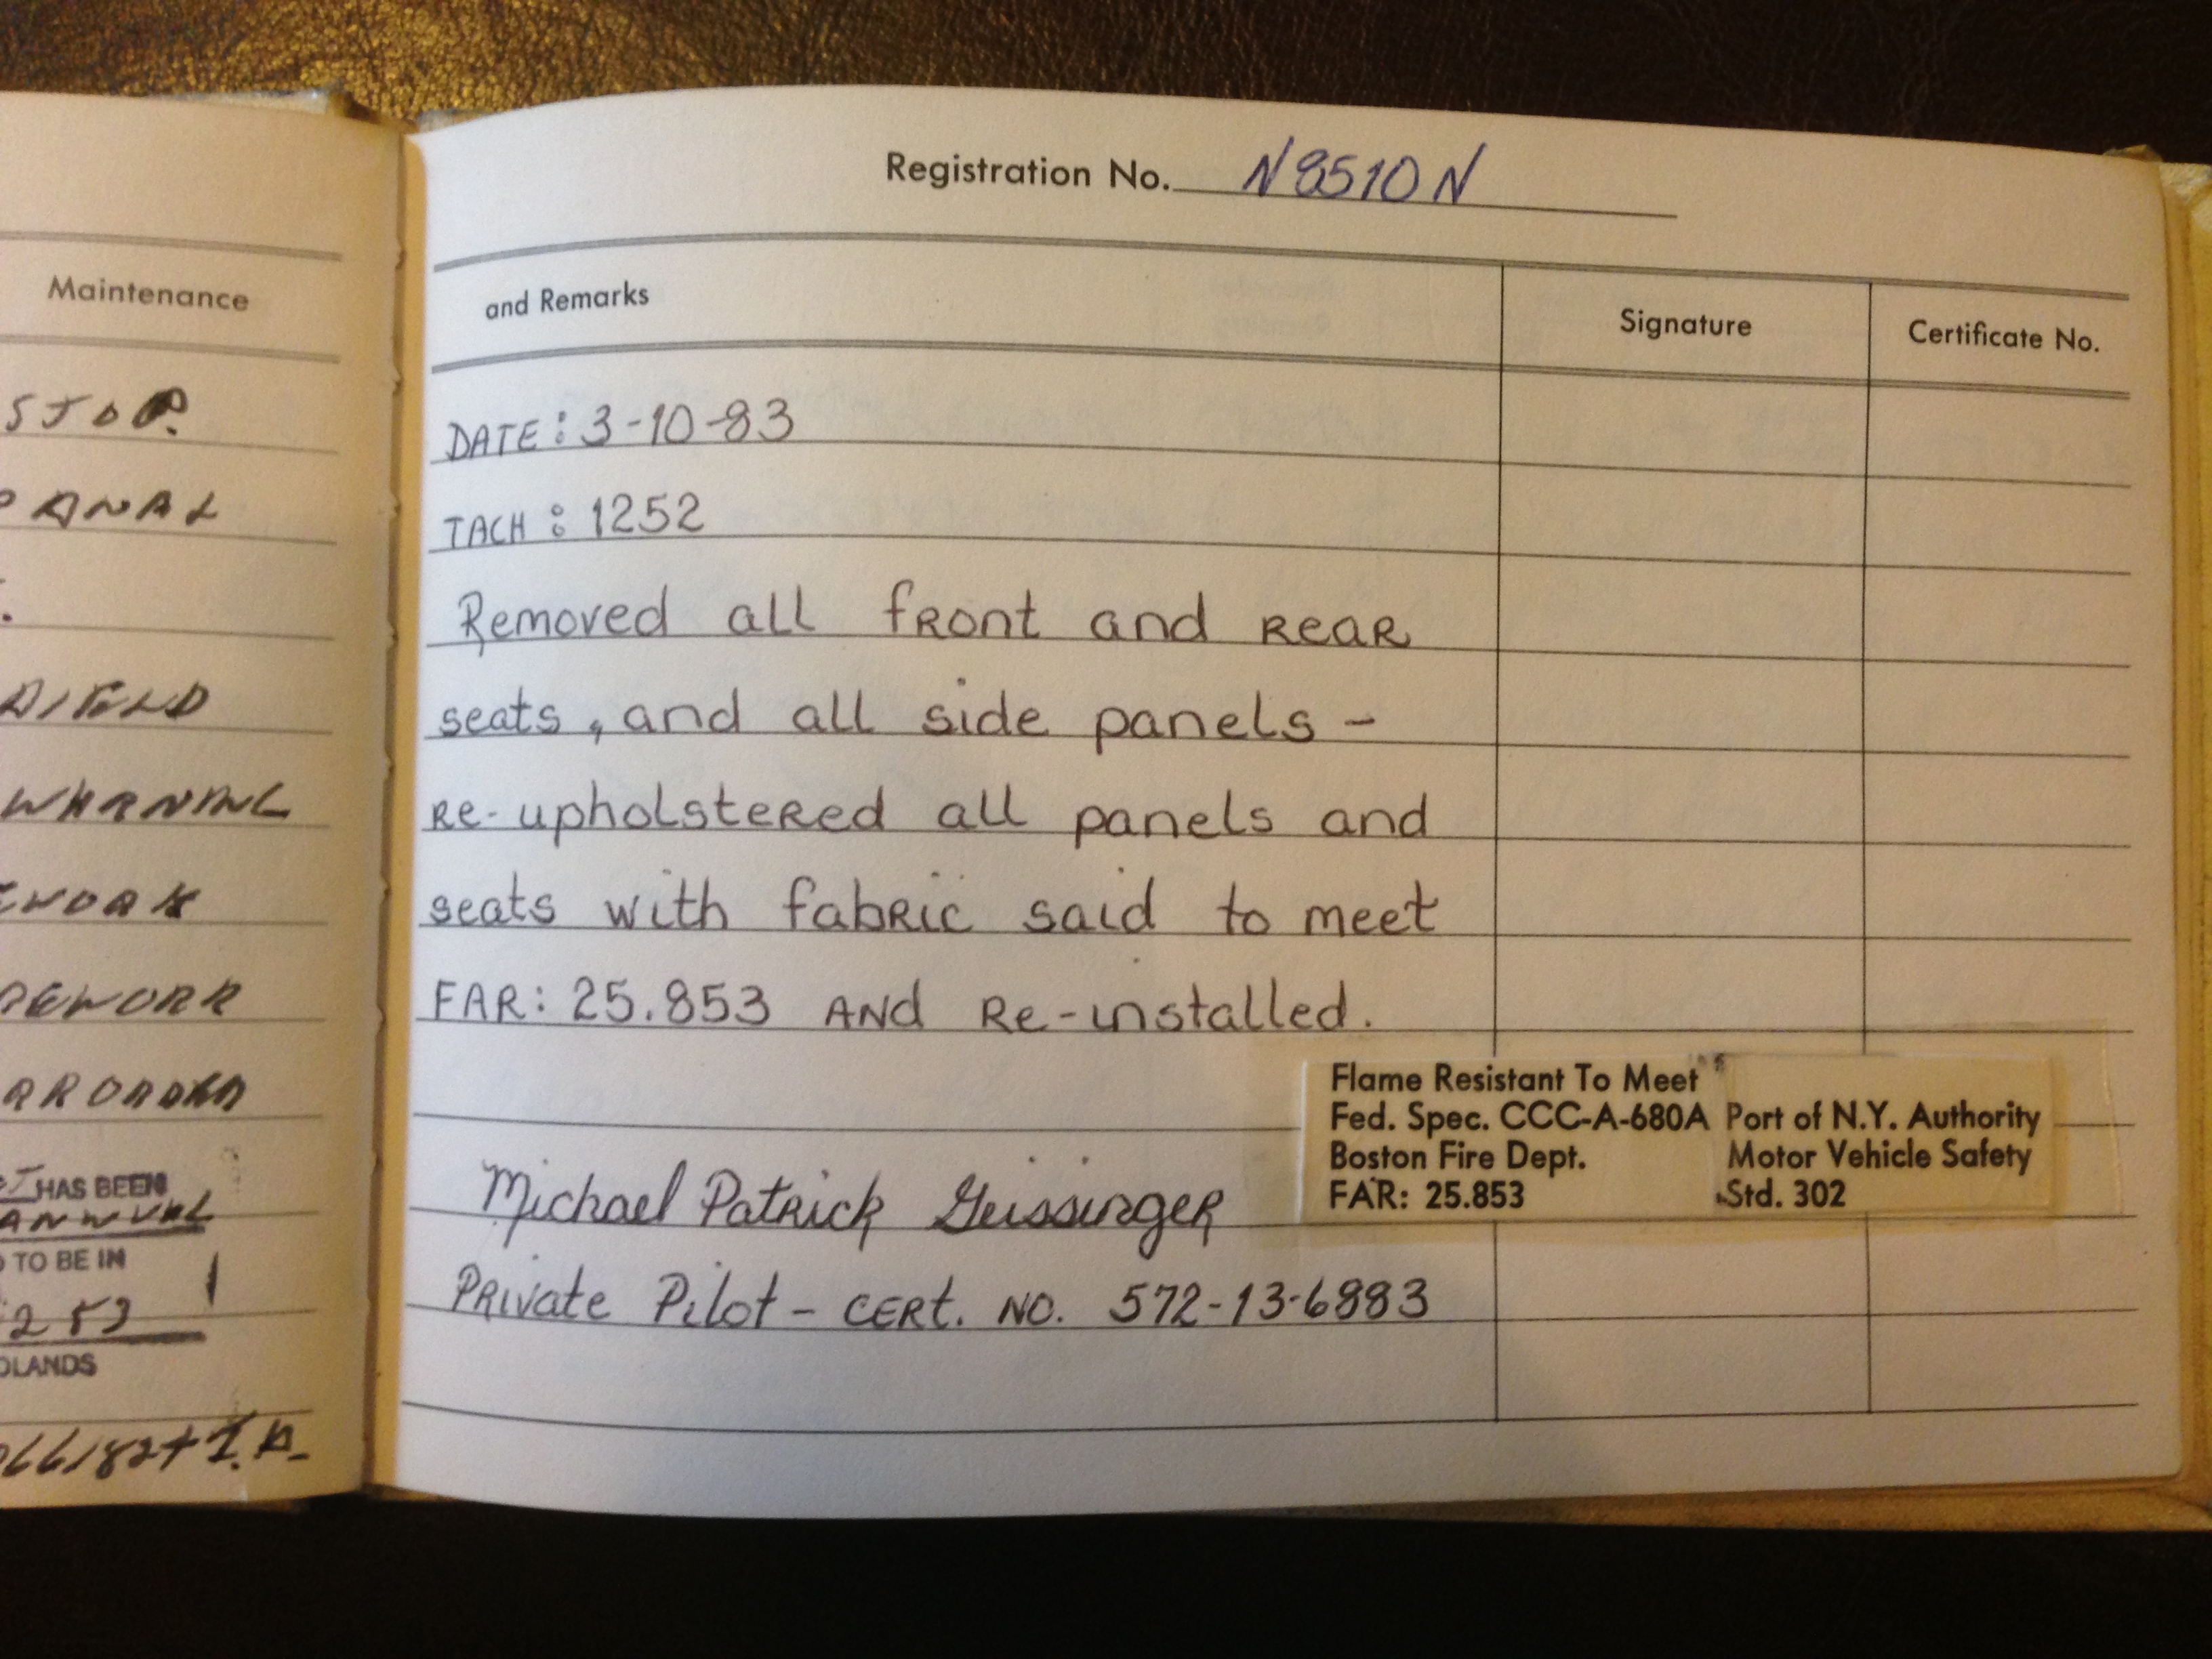 Registration No. N8510N
Maintenance
and Remarks
Signature
Certificate No.
STOP.
WARNING
HAS BEEN
ANNUAL
TO BE IN
DATE: 3-10-83
TACH: 1252
Removed all front and rear
seats, and all side panels -
re-upholstered all panels and
seats with fabric said to meet
FAR: 25.853 and re-installed.
Flame Resistant To Meet
Fed. Spec. CCC-A-680A Port of N.Y. Authority
Boston Fire Dept. Motor Vehicle Safety
FAR: 25.853 Std. 302
Michael Patrick Geissinger
Private Pilot - CERT. NO. 572-13-6883